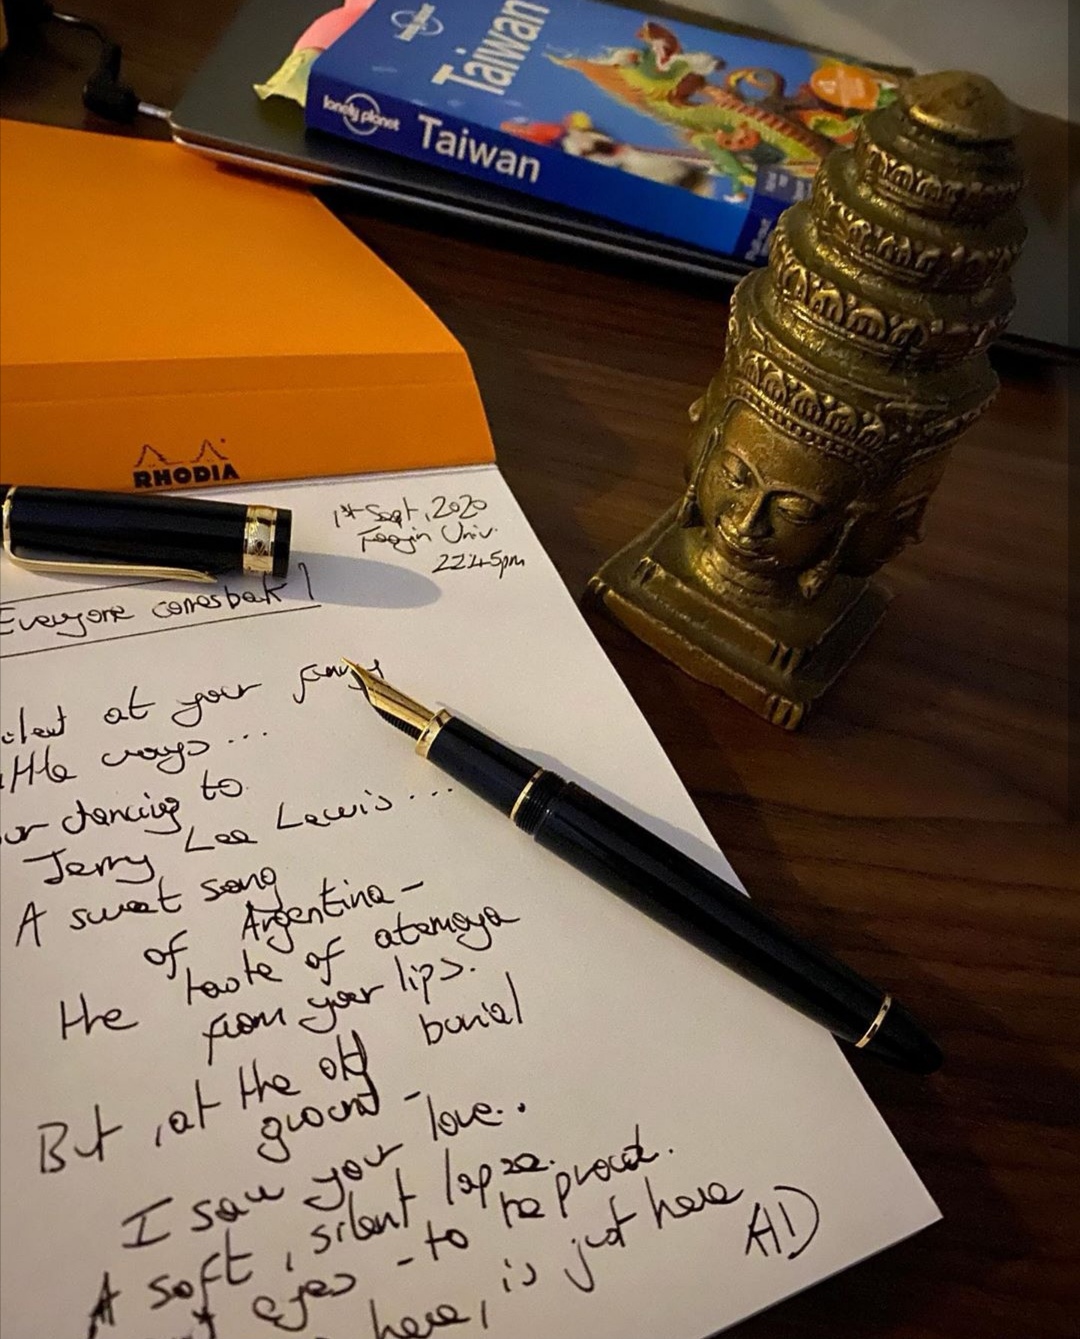 lonely planet
Taiwan
lonely planet
Taiwan
RHODIA
1st Sept, 2020
Univ.
2245pm
Everyone comes back
at your funny
ways...
dancing to
Jerry Lee Lewis...
A sweet song
of Argentina -
the taste of atemoya
from your lips.
But, at the old burial
ground -
I saw your love..
A soft, silent lapse.
eyes - to be proud.
here, is just here
AD